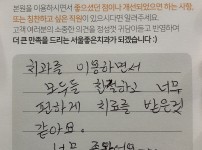 본원을 이용하면서 좋으셨던 점이나 개선되었으면 하는 사항,
또는 칭찬하고 싶은 직원이 있으시다면 알려주세요.
고객 여러분의 소중한 의견을 정성껏 귀담아듣고 반영하여
더 큰 만족을 드리는 서울좋은치과가 되겠습니다 :)
치과를 이용하면서
모두들 친절하고 너무
편하게 치료를 받은것
같아요.
너무